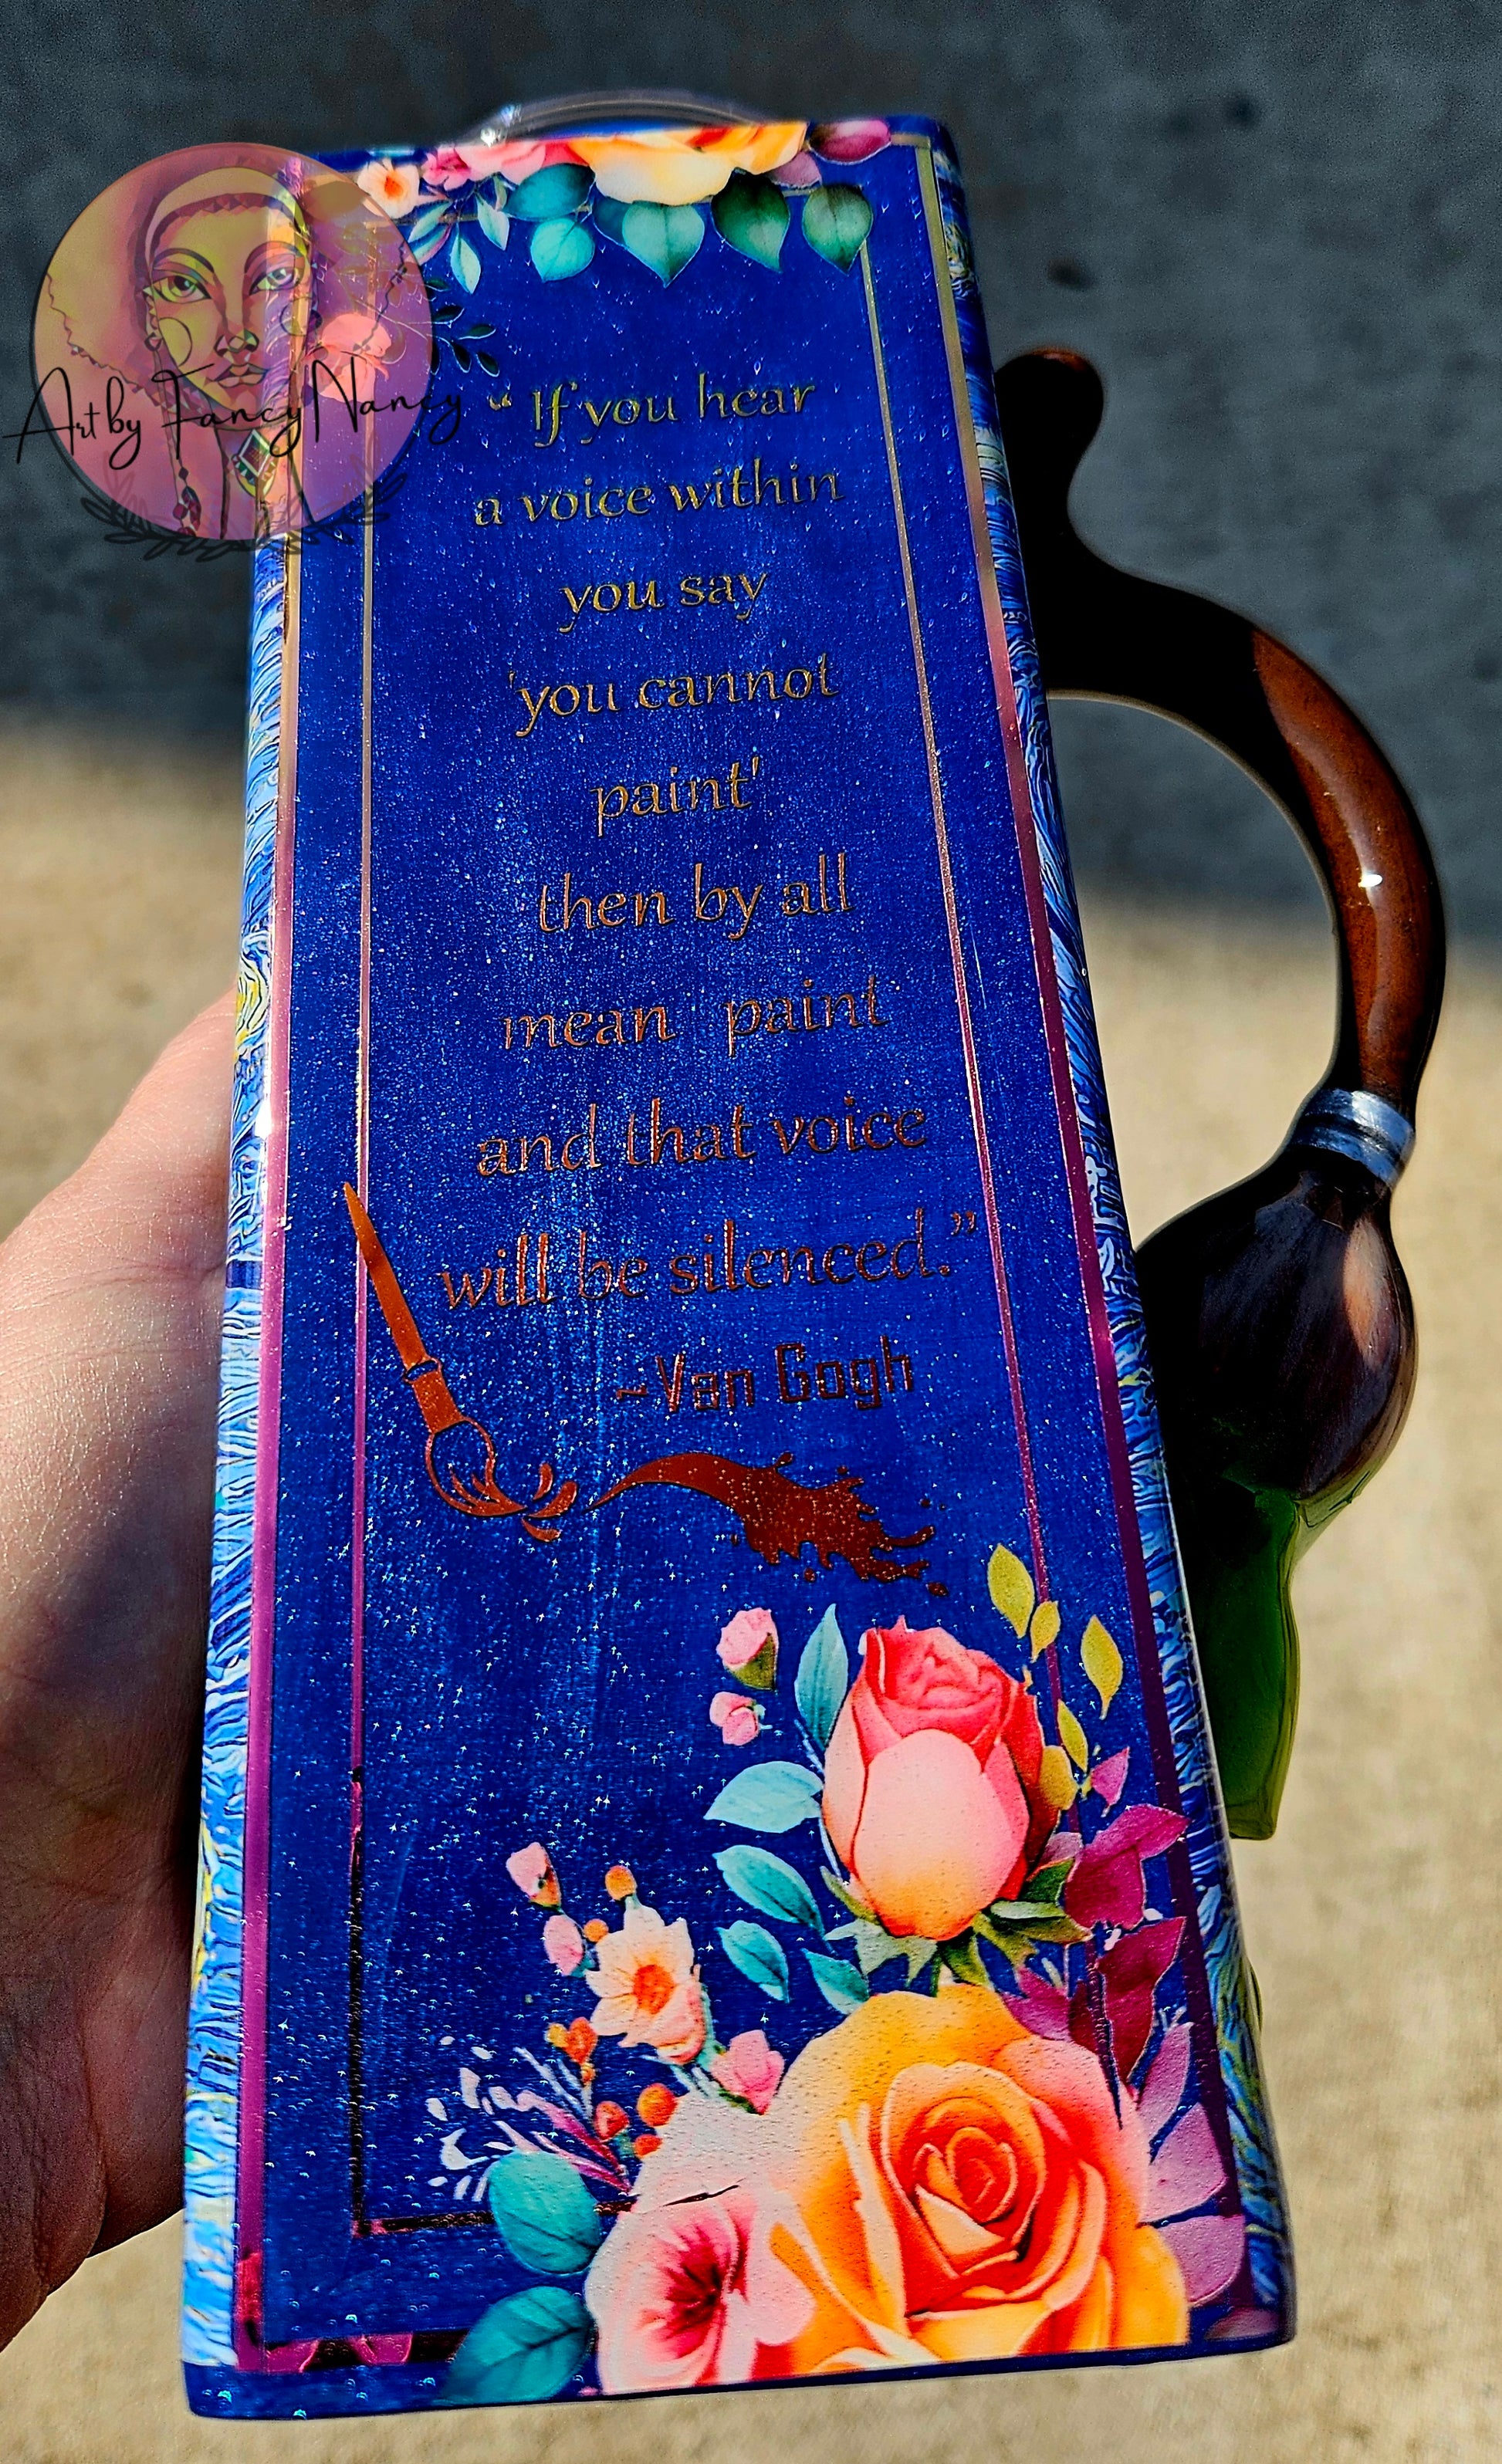 Art by Fancy Nancy
“ If you hear
a voice within
you say
'you cannot
paint'
then by all
mean paint
and that voice
will be silenced.”
~Van Gogh